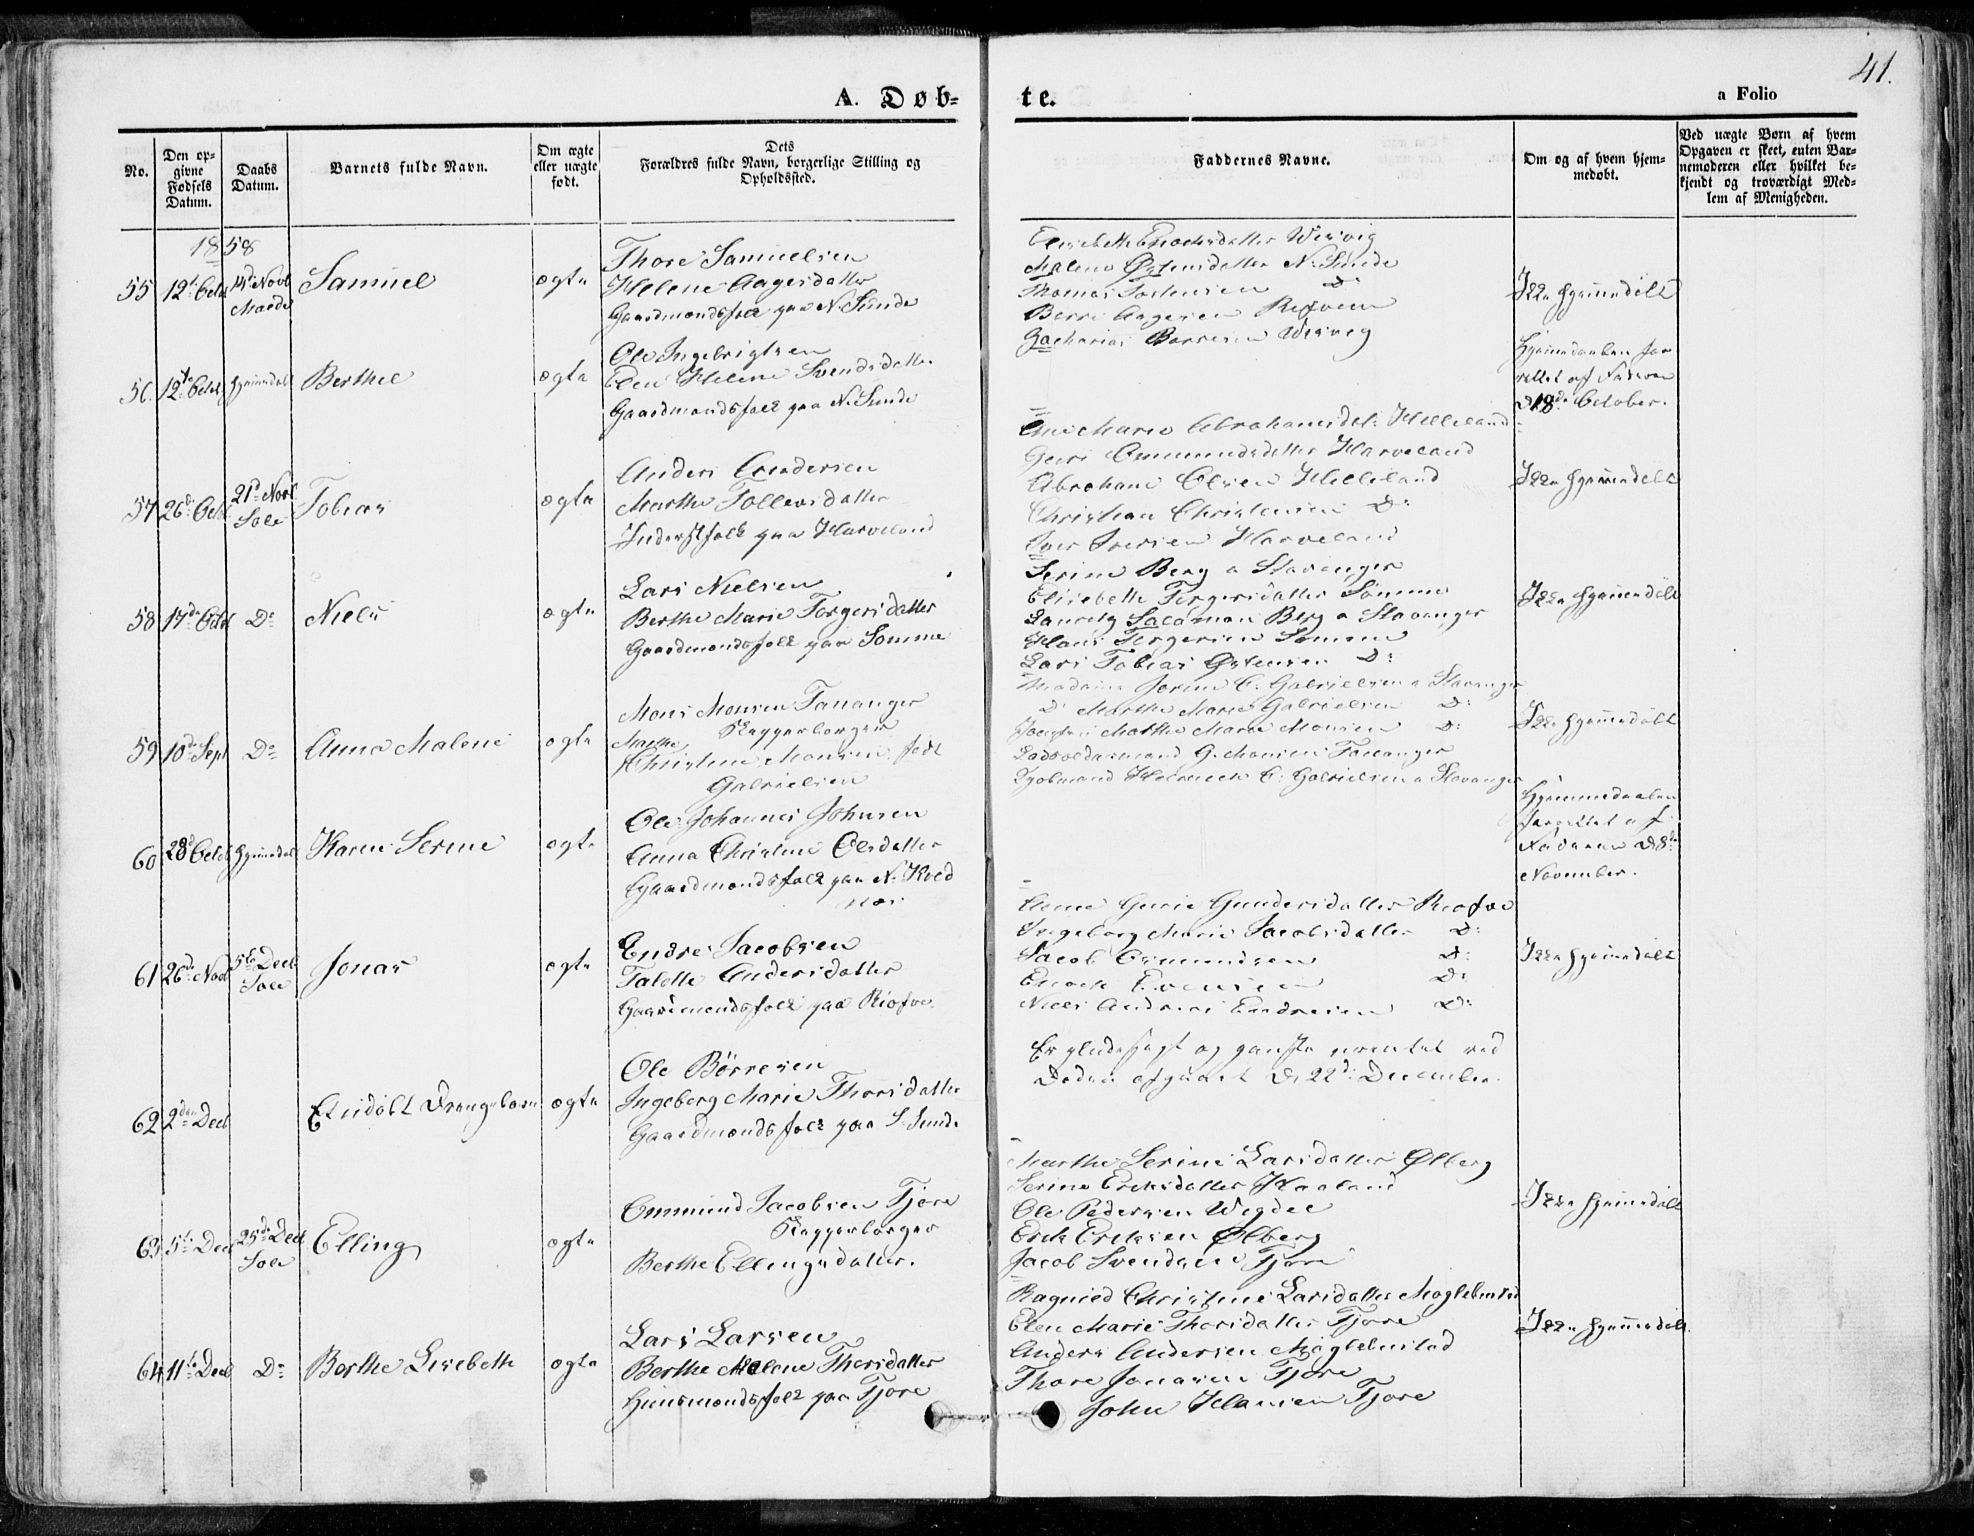 41.
A. Døb-
te.
a Folio
No.
Den op-
givne
Fødsels
Datum.
Daabs
Datum.
Barnets fulde Navn.
Om ægte
eller uægte
født.
Dets
Forældres fulde Navn, borgerlige Stilling og
Opholdssted.
Faddernes Navne.
Om og af hvem hjem-
medøbt.
Ved uægte Børn af hvem
Opgaven er skeet, enten Bar-
nemoderen eller hvilket be-
kjendt og troværdigt Med-
lem af Menigheden.
1858
55 12te Octbr 14de Novbr
Samuel
ægte
Thore Samuelsen
Helene Aagesdatter
Gaardmandsfolk paa N. Sunde
Malene Østensdatter N. Sunde
Thomas Torstensen Do
Børre Aagesen
Zacharias Børresen
Ikke hjemmedøbt
56. 12te Octbr hjemmedøbt
Berthel
ægte
Ole Ingebrigtsen
Elen Helene Svendsdatter
Gaardmandsfolk paa N. Sunde
Hjemmedaaben for
rettet af Faderen
d. 18de October.
57 26de Octbr 21de Novbr
Sole
Tobias
ægte
Anders Andersen
Marthe Tollevsdatter
Inderstfolk paa Harveland
Ane Marie Abrahamsdtr Helleland
Guri Ommundsdatter Harveland
Abraham Olsen Helleland
Christian Christensen Do
Iver Iversen Harveland
Ikke hjemmedøbt
58 17de Octbr Do
Niels
ægte
Lars Nielsen
Berthe Marie Torgersdatter
Gaardmandsfolk paa Somme
Serine Berg a Stavanger
Elisebeth Torgersdatter Somme
Lauritz Salamon Berg a Stavanger
Hans Torgersen Somme
Lars Tobias Østensen Do
Ikke hjemmedøbt
59 10de Sept Do
Anna Malene
ægte
Mons Monsen Tananger
Skipperborger
Marthe
Christine Monsen født
Gabrielsen
Madame Serine C. Gabrielsen a Stavanger
Do Marthe Marie Gabrielsen Do
Jomfru Marthe Marie Monsen Do
G. Monsen Tananger
C. Gabrielsen a Stavanger
Ikke hjemmedøbt
60 28de Octbr hjemmedøbt
Karen Serine
ægte
Ole Johannes Johnsen
Anna Christine Olsdatter
Gaardmandsfolk paa N. Kold
næs
Hjemmedaaben
forrettet af
Faderen d. 8de
November.
61 26de Novbr 5te Decbr
Sole
Jonas
ægte
Endre Jacobsen
Talette Andersdatter
Gaardmandsfolk paa Risfoe
Anne Gurie Gundersdatter Risfoe
Ingeborg Marie Jacobsdatter Do
Jacob Ommundsen Do
Enoch Evensen Do
Niels Andreas Endresen Do
Ikke hjemmedøbt
62 2den Decbr
Et udøbt Drengebarn
ægte
Ole Börresen
Ingeborg Marie Thorsdatter
Gaardmandsfolk paa S. Sunde
Er pludseligt og ganske uventet ved
Døden afgaaet d. 22de December.
63 5te Decbr 25de Decbr
Sole
Elling
ægte
Ommund Jacobsen Tjore
Skipperborger
Berthe Ellingsdatter.
Marthe Serine Larsdatter Ølberg
Serine Eriksdatter Haaland
Ole Pedersen Wigdel
Erik Eriksen Ølberg
Jacob Svendsen Tjore
Ikke hjemmedøbt
64 11te Decbr Do
Berthe Lisebeth
ægte
Lars Larsen
Berthe Malene Thorsdatter
Huusmandsfolk paa Tjore
Ragnild Christine Larsdatter
Elen Marie Thorsdatter Tjore
Anders Andersen
Thore Jonasen Tjore
John Hansen Tjore
Ikke hjemmedøbt